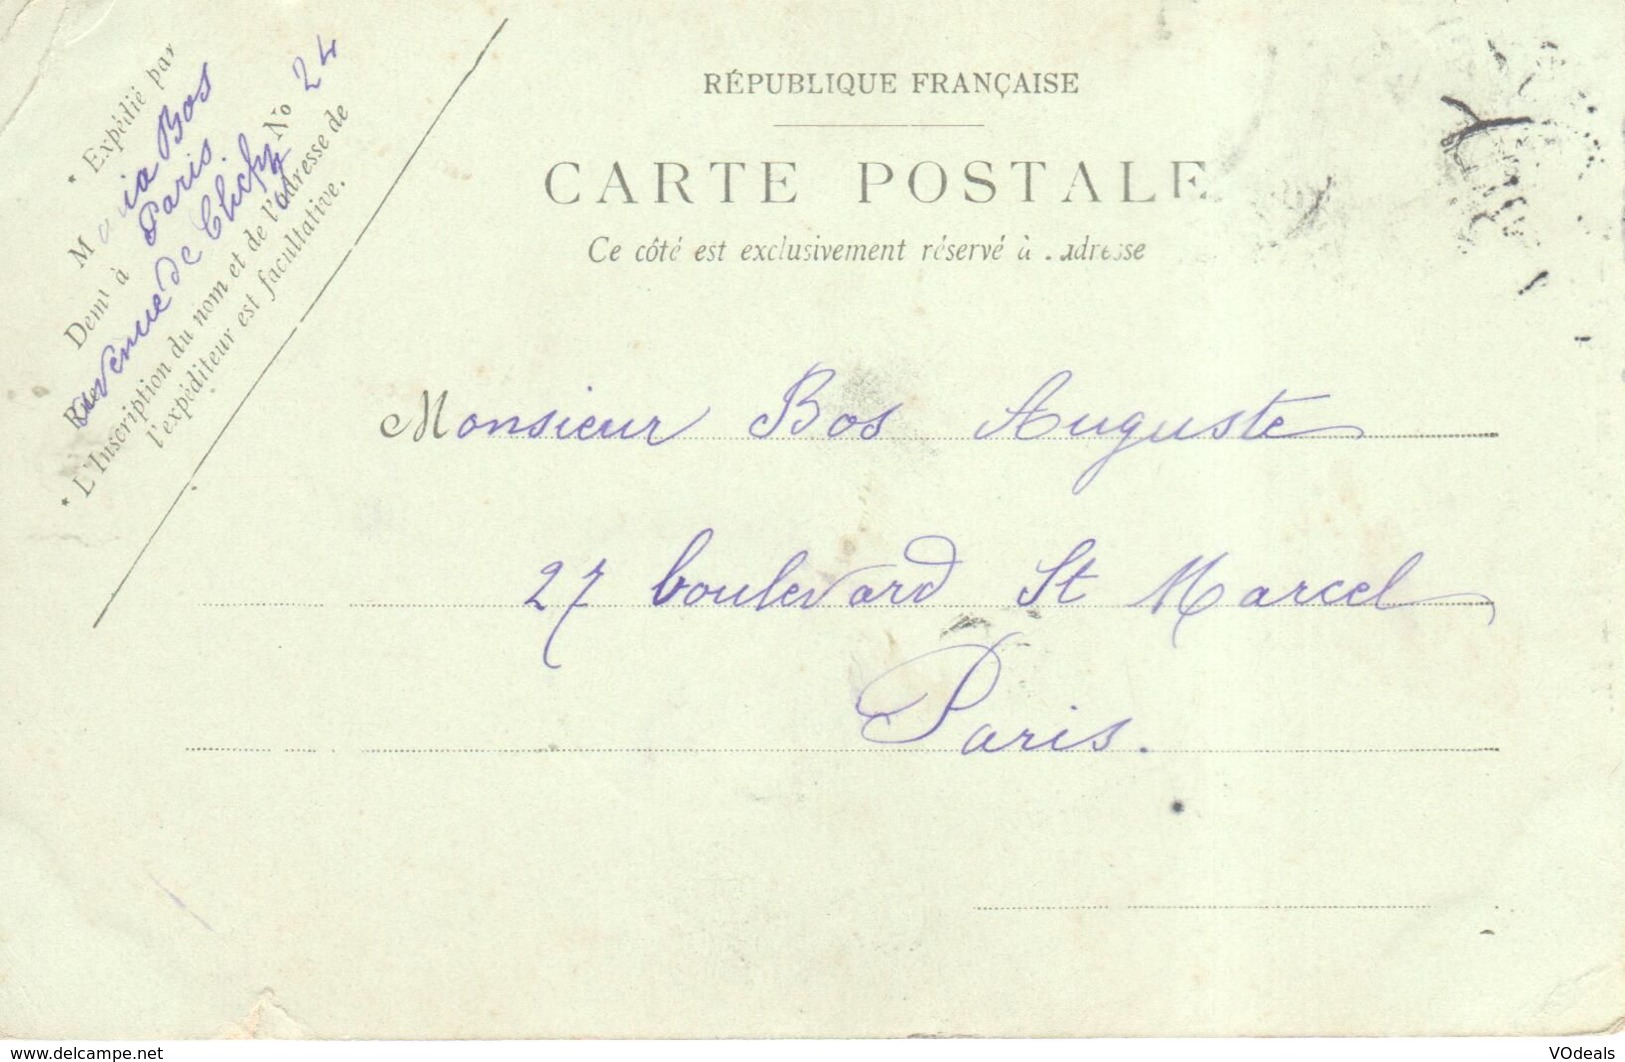 * Expédié par
Maria Bos
Demt à Paris
Rue avenue de Clichy No 24
* L'Inscription du nom et de l'adresse de
l'expéditeur est facultative.
RÉPUBLIQUE FRANÇAISE
CARTE POSTALE
Ce côté est exclusivement réservé à adresse
Monsieur Bos Auguste
27 boulevard St Marcel
Paris.
www.delcampe.net
VOdeals